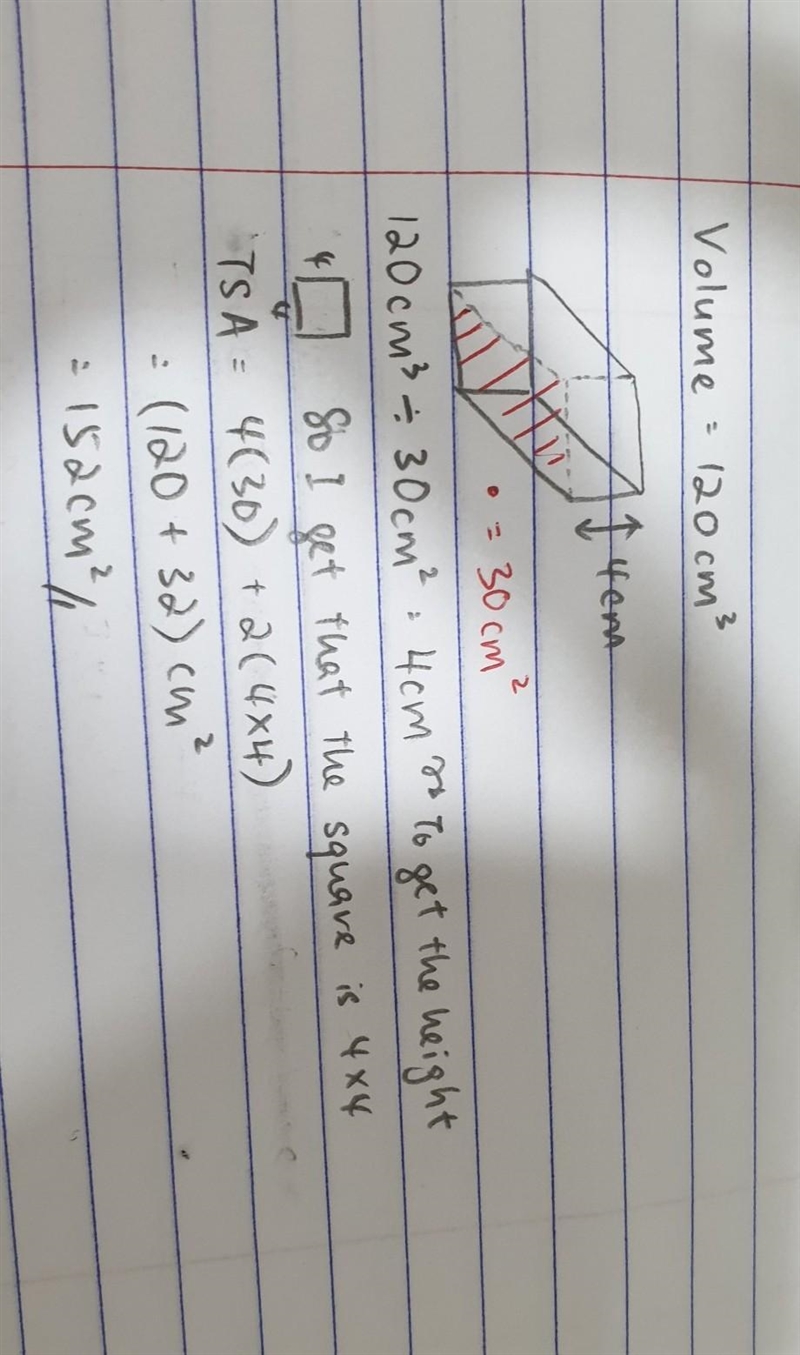 Volume = 120cm³
4cm
• = 30cm²
120cm³ ÷ 30cm² = 4cm ~> To get the height
4
4
So I get that the square is 4×4
TSA = 4(30) + 2(4×4)
= (120 + 32) cm²
= 152cm²//